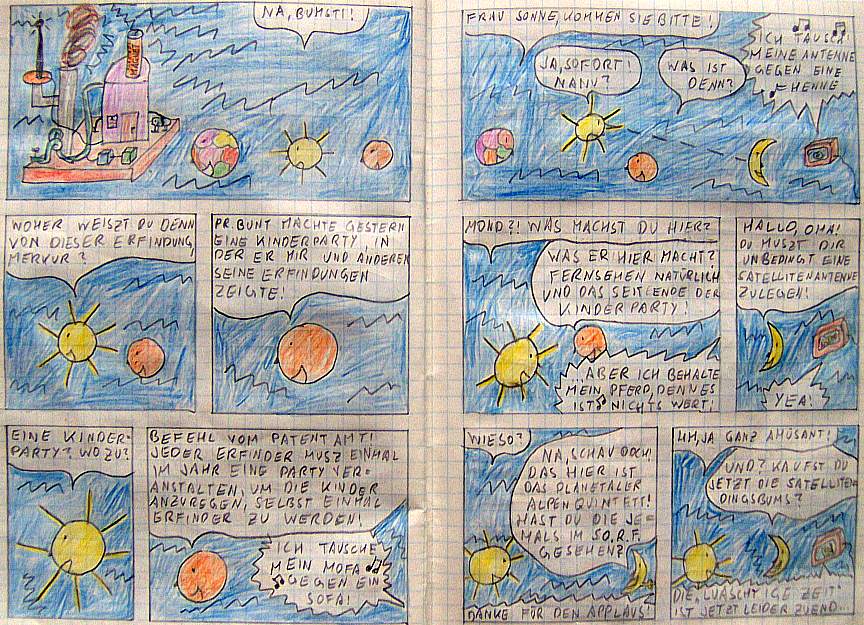 NA, BUMSTI!
WOHER WEISZT DU DENN
VON DIESER ERFINDUNG,
MERKUR?
PR. BUNT MACHTE GESTERN
EINE KINDERPARTY, IN
DER ER MIR UND ANDEREN
SEINE ERFINDUNGEN
ZEIGTE!
EINE KINDER-
PARTY? WOZU?
BEFEHL VOM PATENTAMT!
JEDER ERFINDER MUSZ EINMAL
IM JAHR EINE PARTY VER-
ANSTALTEN, UM DIE KINDER
ANZUREGEN, SELBST EINMAL
ERFINDER ZU WERDEN!
ICH TAUSCHE
MEIN MOFA
GEGEN EIN
SOFA!
FRAU SONNE, KOMMEN SIE BITTE!
JA, SOFORT!
NANU?
WAS IST
DENN?
ICH TAUSCH
MEINE ANTENNE
GEGEN EINE
HENNE
MOND?! WAS MACHST DU HIER?
WAS ER HIER MACHT?
FERNSEHEN NATÜRLICH
UND DAS SEIT ENDE DER
KINDERPARTY!
...ABER ICH BEHALTE
MEIN PFERD, DENN ES
IST NICHTS WERT!
HALLO, OMA!
DU MUSZT DIR
UNBEDINGT EINE
SATELLITENANTENNE
ZULEGEN!
YEA!
WIESO?
NA, SCHAU DOCH!
DAS HIER IST
DAS PLANETALER
ALPENQUINTETT!
HAST DU DIE JE-
MALS IM SO.R.F.
GESEHEN?
DANKE FÜR DEN APPLAUS!
HM, JA GANZ AMÜSANT!
UND? KAUFST DU
JETZT DIE SATELLITEN-
DINGSBUMS?
DIE ZEIT
IST JETZT LEIDER ZUEND...